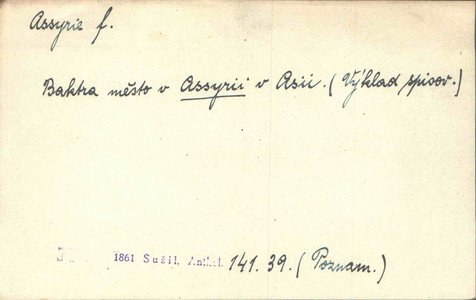 Assyrie f.
Baktra město v Assyrii v Asii. (Výklad spisov.)
1861 Sušil, Anthol. 141. 39. (Poznam.)